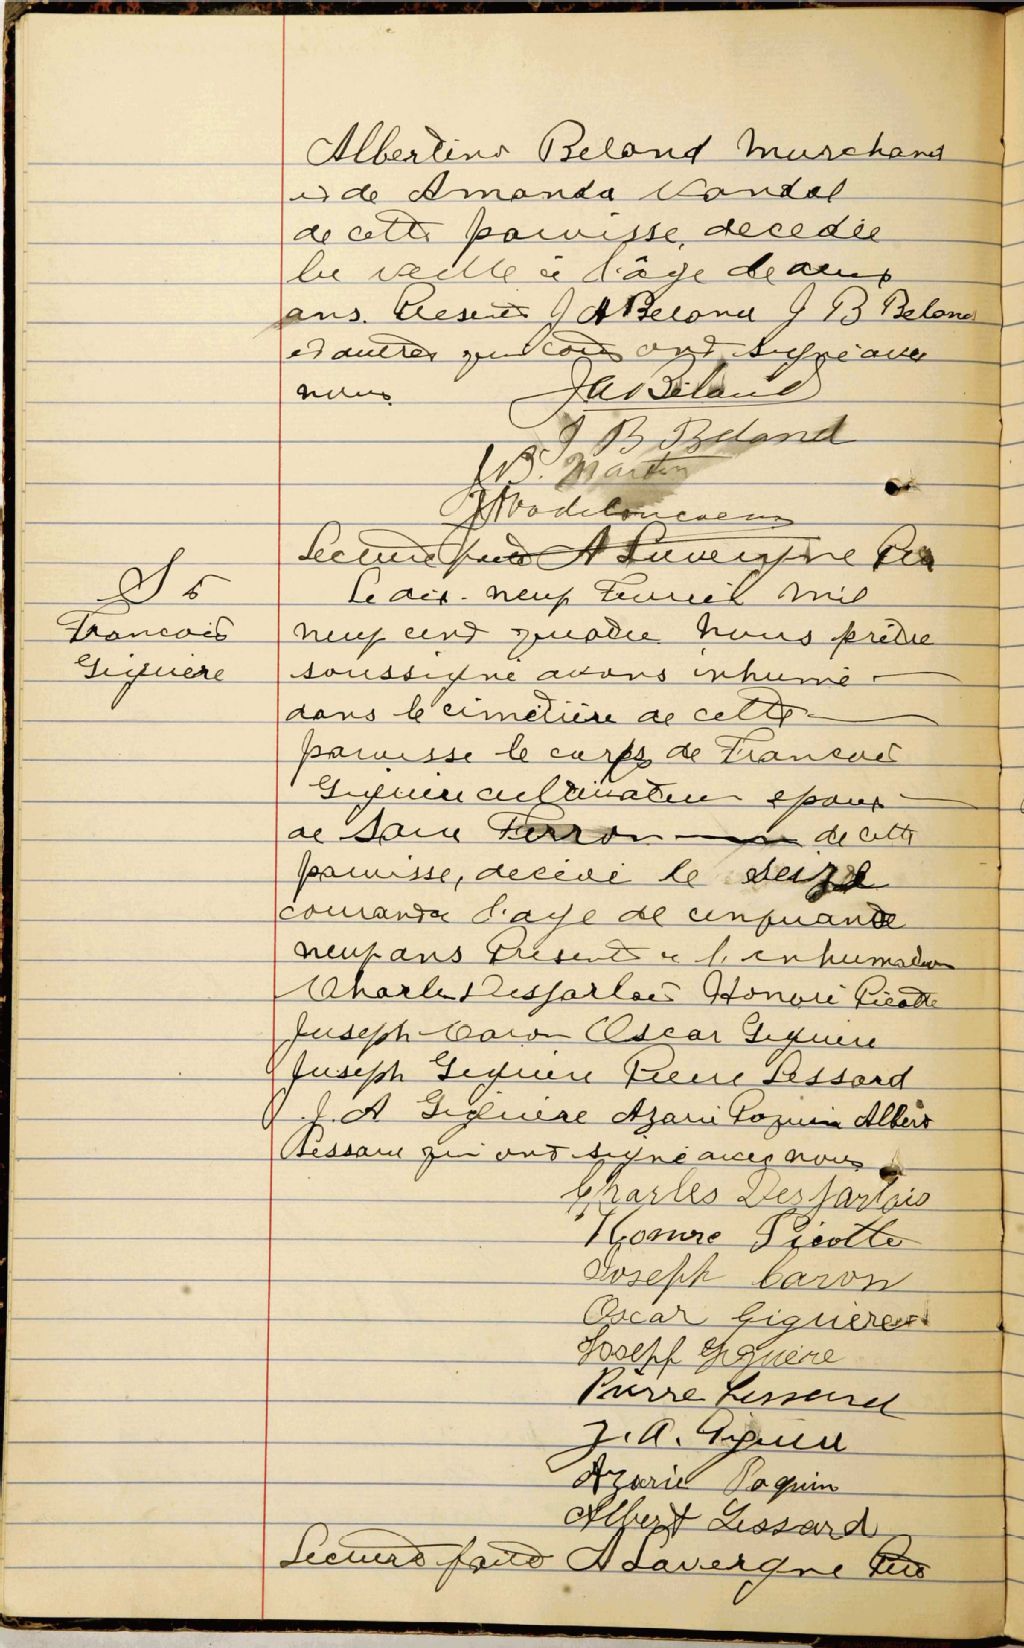 Albertino Beland Marchand
et de Amanda Vandal
de cette paroisse, decedée
la veille à l'âge de deux
ans. Present J A Beland J B Beland
et autres qui ont signé avec
nous
J A Béland
J B Beland
J B. Martin
Lecture faite A Lavergne Ptre
S 6
Francois
Giguère
Le dix-neuf Fevrier mil
neuf cent quatre nous prêtre
soussigné avons inhumé
dans le cimetière de cette
paroisse le corps de Francois
Giguere cultivateur epoux
de Ferron de cette
paroisse, decedé le seize
courant a l'age de cinquante
neuf ans Present a l'inhumation
Charles Desjarlais Honoré Picotte
Joseph Caron Oscar Giguere
Joseph Giguere Pierre Lessard
J. A Giguère Azarie Paquin Albert
Lessard qui ont signé avec nous
Charles Desjarlais
Honore Picotte
Joseph Caron
Oscar Giguère
Joseph Giguère
Pierre Lessard
J. A. Giguere
Azarie Paquin
Albert Lessard
Lecture faite A Lavergne Ptre